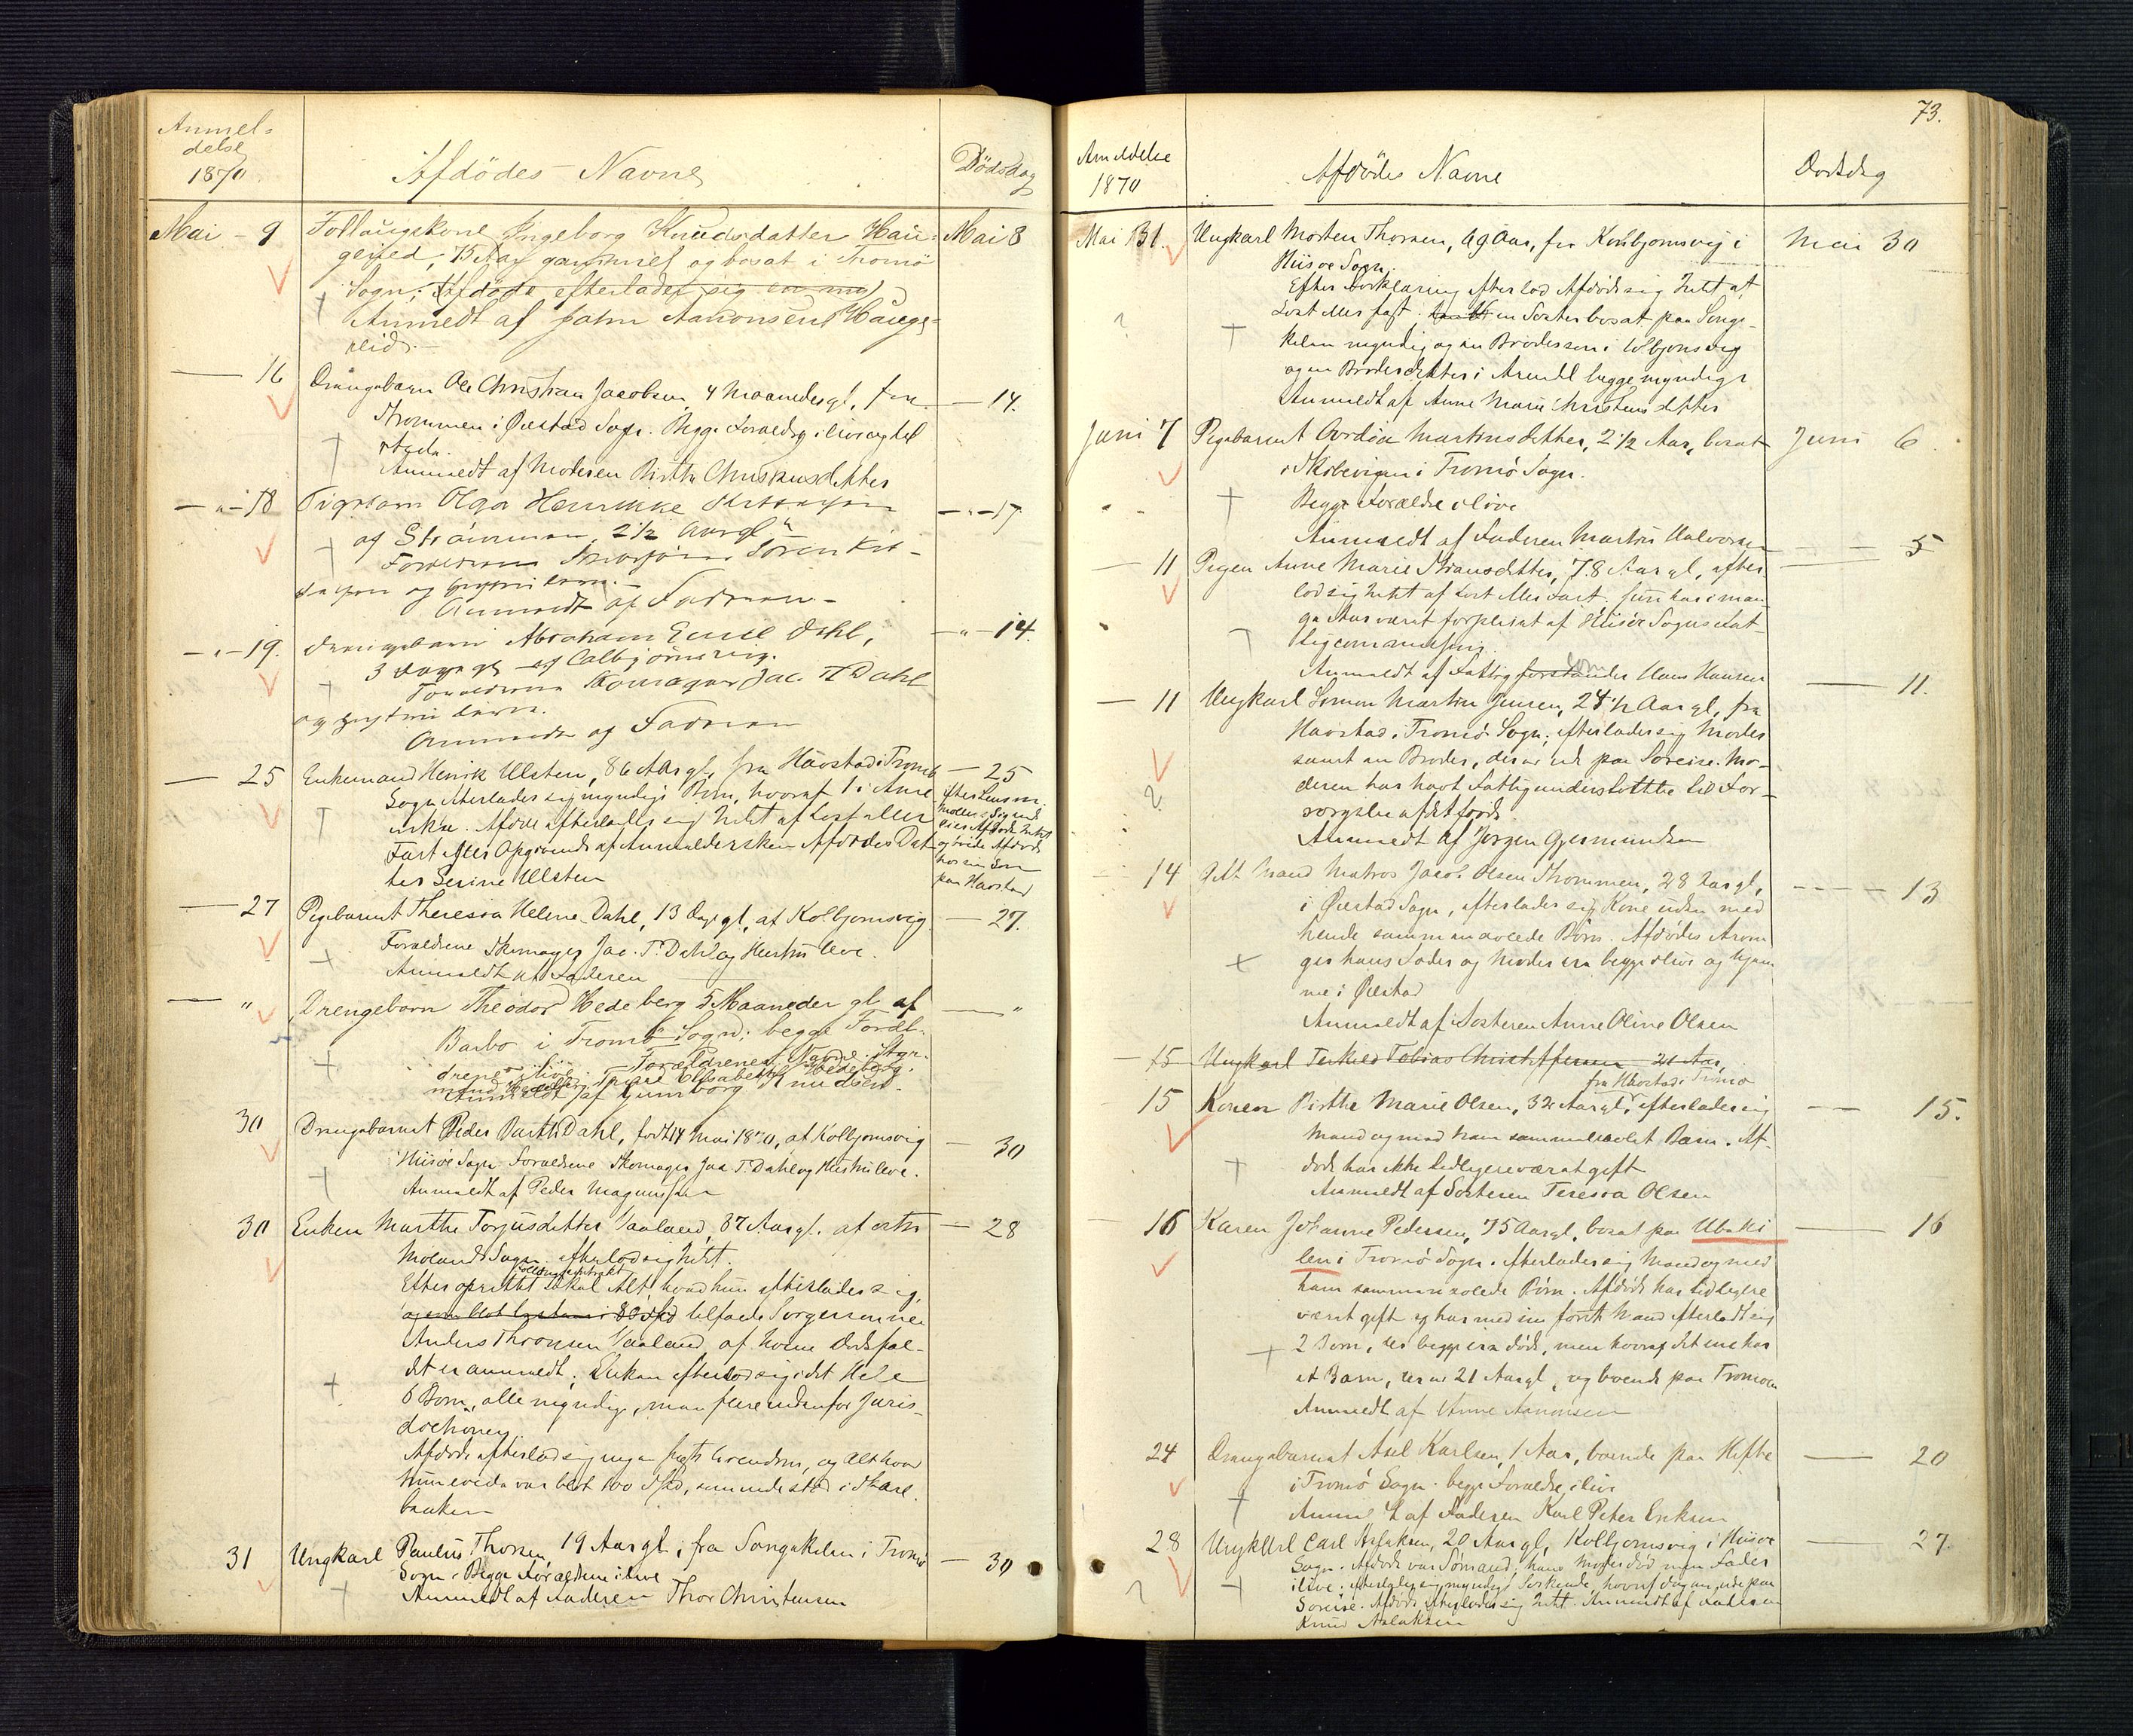 Anmel-
delse
1870
Afdødes Navne
Dødsdag
Mai - 9 Follaugskone Ingeborg Knudsdatter Hau- Mai 8
geried, 75 Aar gammel og bosat i Tromø
Sogn; Afdøde efterlader sig
Anmeldt af John Aanonsen Hauge-
reid.
— 16 Drengebarn Ole Christian Jacobsen, 4 Maaneder gl, fra — 14.
Strømmen i Øiestad Sogn. Begge Forældre ilive og tel
stede.
Anmeldt af Moderen Birthe Christensdatter
— " — 18 Pigebarn Olga Henrikke — " — 17
af Strømmen, 2 1/2 Aar gl
Forældrene Søren
og hustru leve.
Anmeldt af Faderen
— " — 19. Drengebarn Abraham Emil Dahl, — " — 14.
3 dage gl af Colbjørnsvig.
Forældrene Skomager Jac. T Dahl
og hustru leve.
Anmeldt af Faderen
— 25 Enkemand Henrik Ulsten, 86 Aar gl, fra Havstad i Tromø — 25
Sogn efterlader sig myndige Børn, hvoraf 1 i Ame
rika. Afdøde efterlader sig Intet af Løst eller
Fast efter Opgivende af Anmeldersken Afdødes Dat
ter Serine Ulsten
efter Lensm.
eier Afdøde Intet
og boede Afdøde
hos sin Søn
paa Havstad
— 27 Pigebarnet Theresia Helene Dahl, 13 Dage gl, af Kolbjørnsvig — 27.
Forældrene Skomager Jac. T. Dahl og Hustru leve.
Anmeldt af Faderen
— " Drengebarn Theodor Hedeberg 5 Maaneder gl af — "
Barbo i Tromø Sogn; begge Foræl-
drene ilive. Forældrenes Navne: Styr-
mand Hedeberg, Thrine Elisabeth Hedeberg.
Anmeldt af Gunborg Knudsen.
30 Drengebarnet Peder Barth Dahl, født 14 Mai 1870, af Kolbjornsvig — 30
Hiisøe Sogn. Forældrene Skomager Jac T. Dahl og Hustru leve.
Anmeldt af Peder Magnussen
30 Enken Marthe Torjusdatter Vaaland, 87 Aar gl. af østre — 28
Molands Sogn. efterlod sig Intet.
Follaugskontrakt
Efter oprettet skal Alt, hvad hun efterlader sig,
tilfalde Svigersønnen
Anders Thronsen Vaaland, af hvem Dødsfal-
det er anmeldt; Enken efterlod sig i det Hele
6 Børn, alle myndige, men flere udenfor Juris-
dictionen.
Afdøde efterlod sig ingen fast Eiendom, og Alt hvad
hun eiede var blot 100 Spd, som indestod i Spare
banken
31 Ungkarl Paulus Thorsen, 19 Aar gl, fra Songekilen i Tromø — 30
Sogn. Begge Forældrene ilive
Anmeldt af Faderen Thor Christensen
73.
Anmeldelse
1870
Afdødes Navne
Dødsdag
Mai 31. Ungkarl Morten Thorsen, 69 Aar, fra Kolbjornsvig i Mai 30
Hiisøe Sogn.
Efter Forklaring efterlod Afdøde sig Intet af
Løst eller fast. en Søster bosat paa Songe-
kilen myndig og en Brodersøn i Colbjornsvig
og en Broderdatter i Arendal begge myndige
Anmeldt af Anne Marie Christensdatter
Juni 7 Pigebarnet Ovedia Martinsdatter, 2 1/2 Aar, bosat Juni 6
i Skibevigen i Tromø Sogn.
Begge Forældre ilive
Anmeldt af Faderen Martin Halvorsen
— 11 Pigen Anne Marie datter, 78 Aar gl, efter — 5
lod sig Intet af Løst eller Fast. Hun har i man-
ge Aar været forpleiet af Hiisøe Sogns Fat-
tigcommission.
Anmeldt af Fattigforstander Hans Hansen
— 11 Ungkarl Simon Martin Jensen, 24 1/2 Aar gl, fra — 11.
Havstad i Tromø Sogn, efterlader sig Moder
samt en Broder, der er ude paa Søreise. Mo-
deren har havt Fattigunderstøttelse til For-
sørgelse af det
Anmeldt af Jørgen Gjermundsen
14 Gift Mand Matros Jacob Olsen Strømmen, 28 Aar gl, — 13
i Øiestad Sogn, efterlader sig Kone uden med
hende sammenavlede Børn. Afdødes Arvin
ger hans Fader og Moder ere begge ilive og hjem
me i Øiestad
Anmeldt af Søsteren Anne Oline Olsen
— 15 Ungkarl Terkild Tobias Christoffersen 21 Aar,
fra Havstad i Tromø
15 Konen Birthe Marie Olsen, 32 Aar gl, efterlader sig — 15.
Mand og med ham sammenavlet Barn. Af-
døde har ikke tidligere været gift
Anmeldt af Søsteren Teresia Olsen
16 Karen Johanne Pedersen, 75 Aar gl, bosat paa Ubeki — 16
len i Tromø Sogn. Efterlader sig Mand og med
ham sammenavlede Børn. Afdøde har tidligere
været gift og har med sin første Mand efterladt sig
2 Børn, der begge ere døde, men hvoraf det ene har
et Barn, der er 21 Aar gl, og boende paa Tromøen
Anmeldt af Anne Aanonsen
24 Drengebarnet Axel Karlsen, 1 Aar, boende paa Hifte — 20
i Tromø Sogn. begge Forældre ilive
Anmeldt af Faderen Karl Peter Eriksen
28 Ungkarl Carl Aslaksen, 20 Aar gl, Kolbjornsvig i Hiisøe — 27
Sogn. Afdøde var Sømand; hans Moder død men Fader
ilive; efterlader sig myndige Søskende, hvoraf dog en ude paa
Søreise. Afdøde efterlader sig Intet. Anmeldt af Faderen
Knud Aslaksen